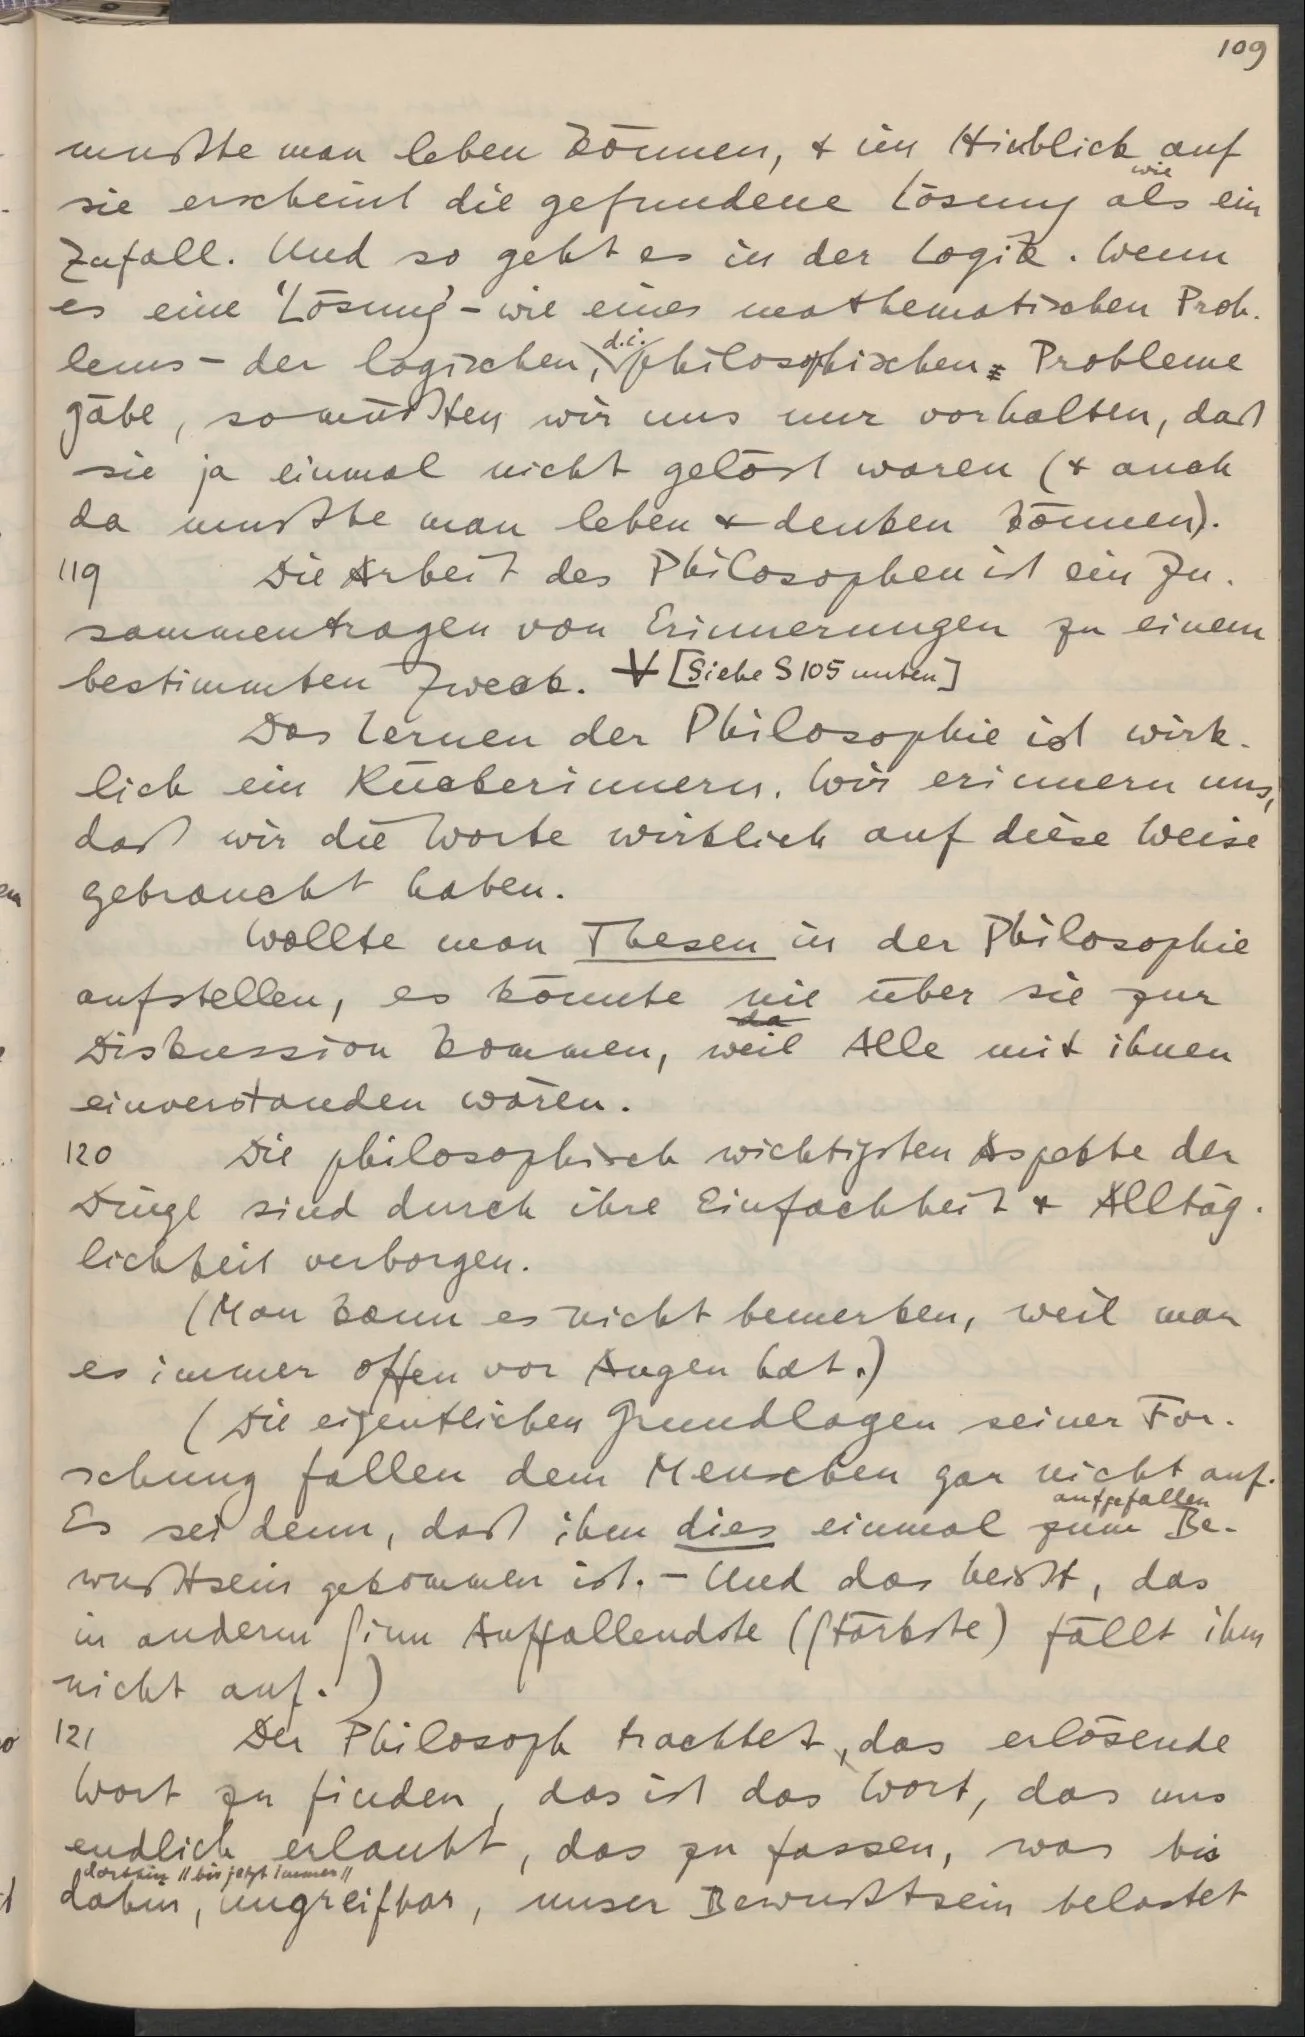 109
mußte man leben können, & im Hinblick auf
wie
sie erscheint die gefundene Lösung als ein
Zufall. Und so geht es in der Logik. Wenn
es eine 'Lösung' – wie eines mathematischen Prob-
d.i.
lems – der logischen, philosophischen, Probleme
gäbe, so müßten wir uns nur vorhalten, daß
sie ja einmal nicht gelöst waren (& auch
da mußte man leben & denken können).
119 Die Arbeit des Philosophen ist ein Zu-
sammentragen von Erinnerungen zu einem
bestimmten Zweck. ∀ [Siehe S 105 unten]
Das Lernen der Philosophie ist wirk-
lich ein Rückerinnern. Wir erinnern uns,
daß wir die Worte wirklich auf diese Weise
gebraucht haben.
Wollte man Thesen in der Philosophie
aufstellen, es könnte nie über sie zur
da
Diskussion kommen, weil Alle mit ihnen
einverstanden wären.
120 Die philosophisch wichtigsten Aspekte der
Dinge sind durch ihre Einfachheit & Alltäg-
lichkeit verborgen.
(Man kann es nicht bemerken, weil man
es immer offen vor Augen hat.)
(Die eigentlichen Grundlagen seiner For-
schung fallen dem Menschen gar nicht auf.
aufgefallen
Es sei denn, daß ihm dies einmal zum Be-
wußtsein gekommen ist. – Und das heißt, das
in anderm Sinn Auffallendste (Stärkste) fällt ihm
nicht auf.)
121 Der Philosoph trachtet, das erlösende
Wort zu finden, das ist das Wort, das uns
endlich erlaubt, das zu fassen, was bis
dorthin // bis jetzt immer //
dahin, ungreifbar, unser Bewußtsein belastet